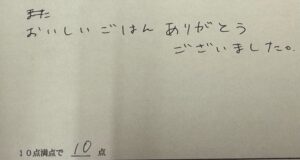 おいしいごはん ありがとう
ございました。
10点満点で 10 点